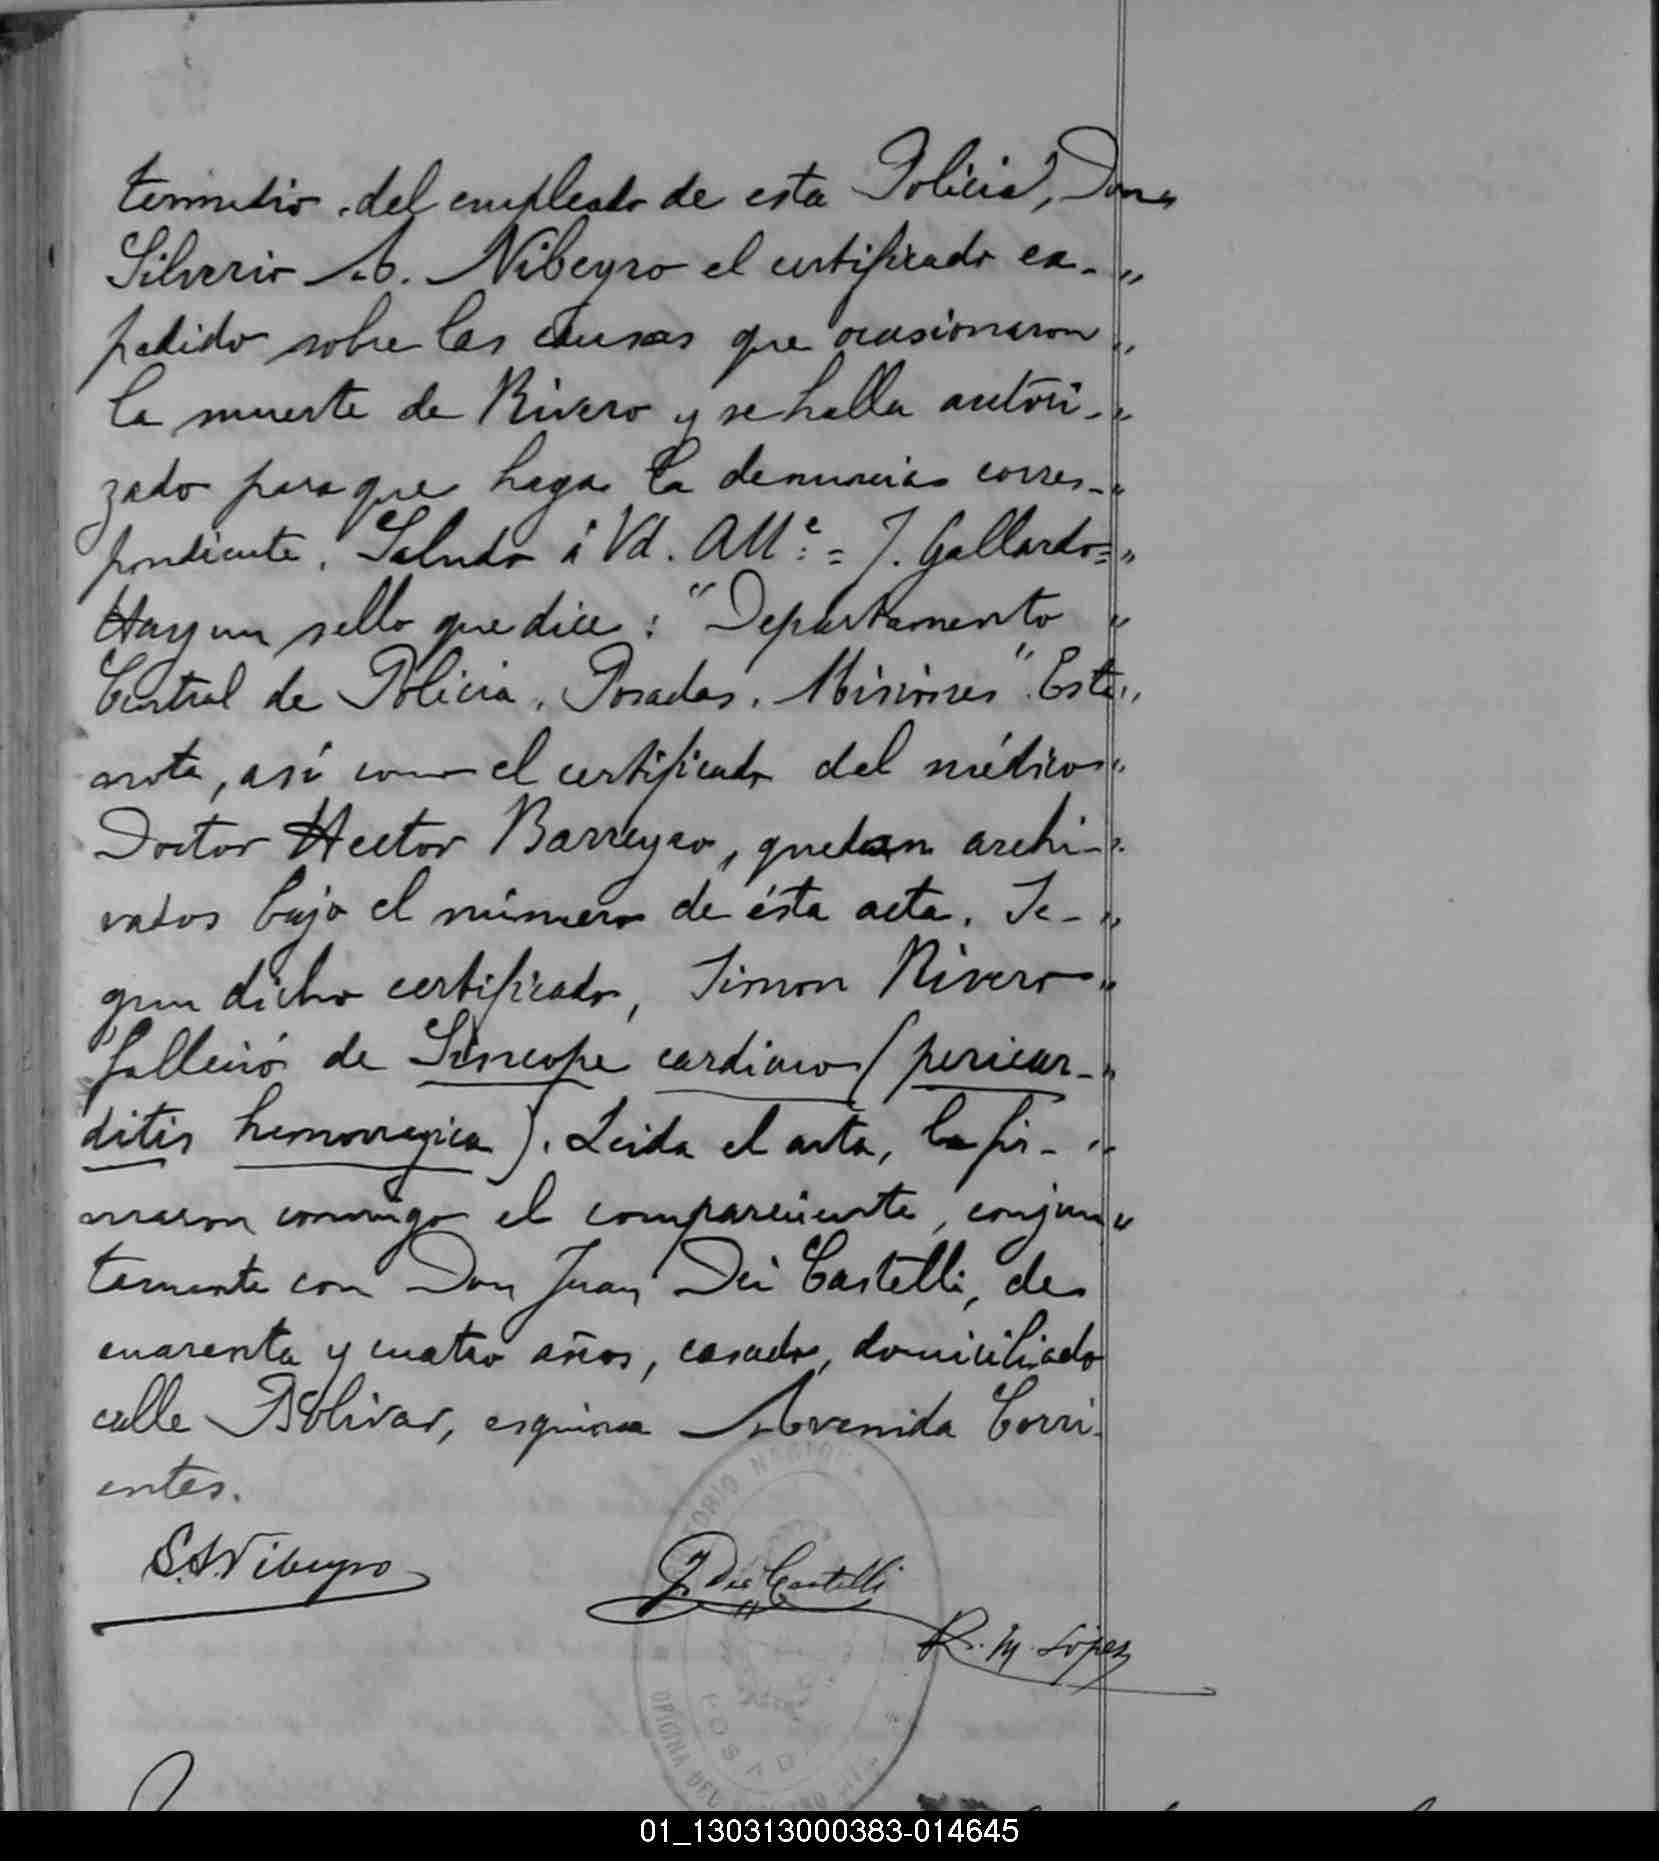 termedio del empleado de esta Policia, Don "
Silverio A. Nibeyro el certificado ex- "
pedido sobre las causas que ocasionaron "
la muerte de Rivero y se halla autori- "
zado para que haga la denuncia corres- "
pondiente. Saludo á Vd. Attᵉ: = J. Gallardo = "
Hay un sello que dice: "Departamento "
Central de Policia. Posadas. Misiones". Esta "
nota, así como el certificado del médico "
Doctor Hector Barreyro, quedan archi- "
vados bajo el número de ésta acta. Se- "
gun dicho certificado, Simon Rivero "
falleció de Síncope cardiaco (pericar- "
ditis hemorragica). Leida el acta, la fir- "
maron conmigo el compareciente, conjun "
tamente con Don Juan Dei Castelli, de
cuarenta y cuatro años, casado, domiciliado
calle Bolivar, esquina Avenida Corri-
entes.
S.A. Nibeyro
J. Dei Castelli
R. M. López
OFICINA DEL
POSAD
01_130313000383-014645